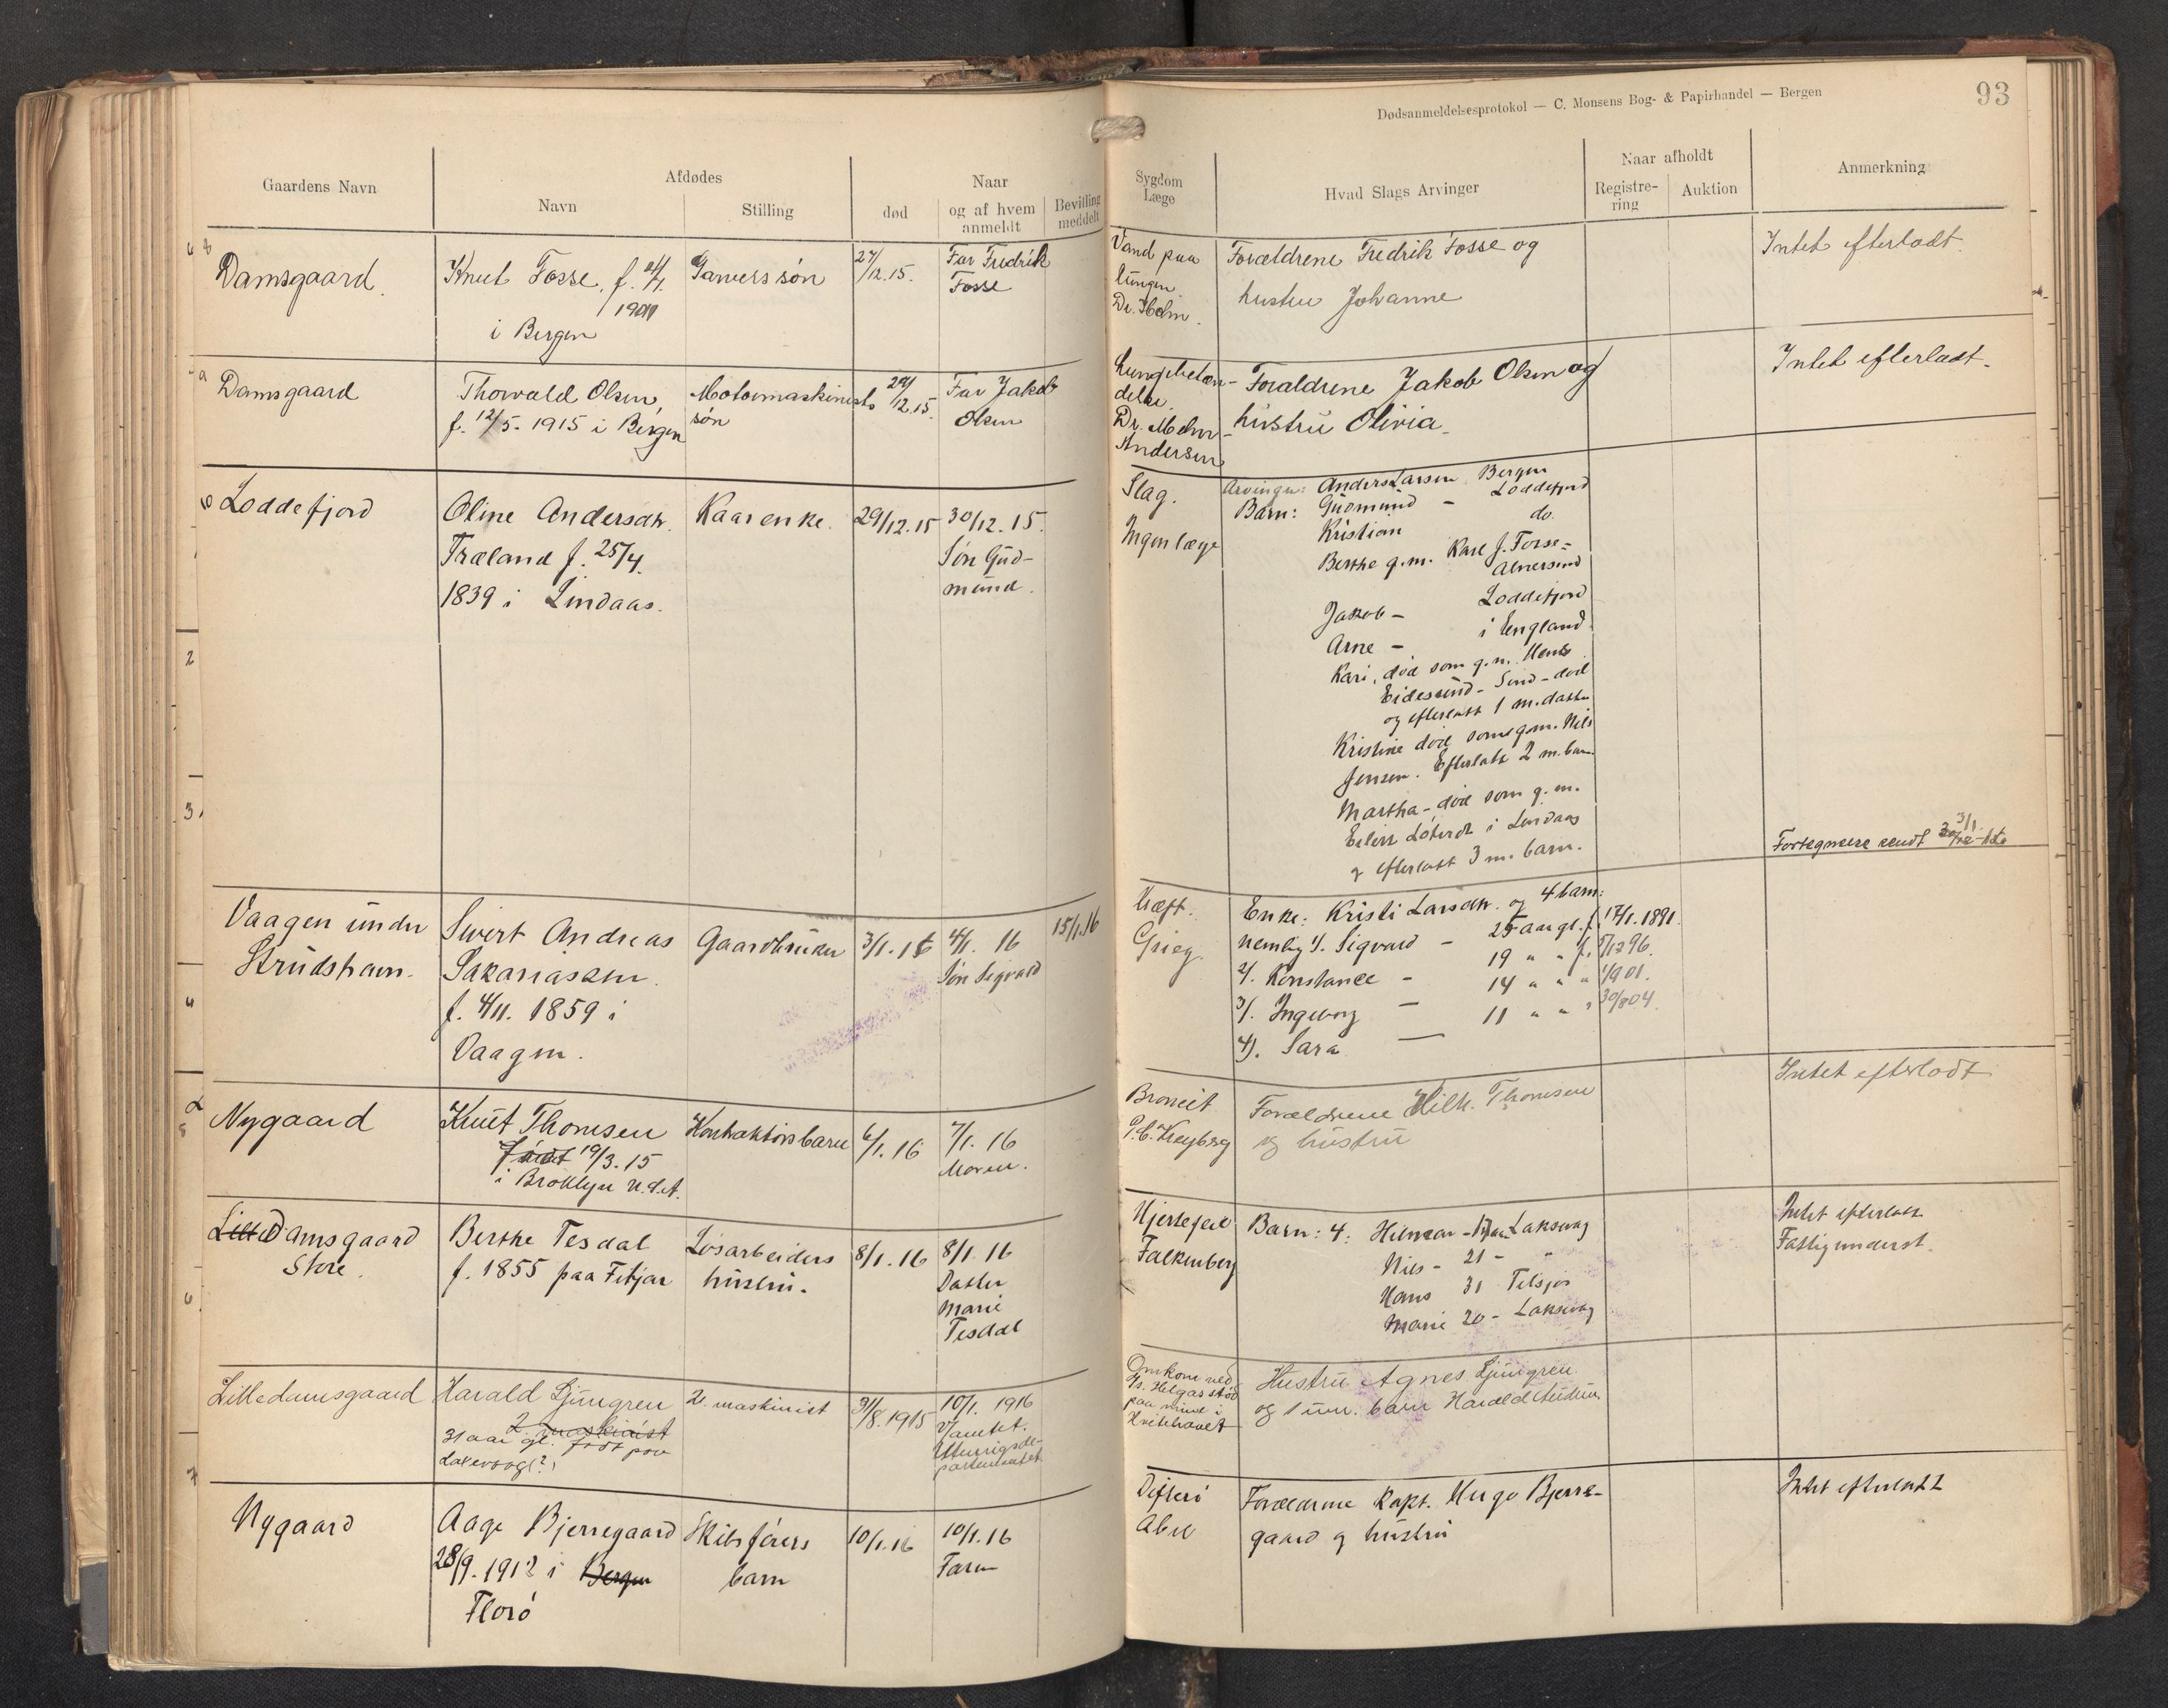 Dødsanmeldelsesprotokol — C. Monsens Bog- & Papirhandel — Bergen
93
Gaardens Navn
Afdødes
Navn
Stilling
død
Naar
og af hvem
anmeldt
Bevilling
meddelt
Sygdom
Læge
Hvad Slags Arvinger
Naar afholdt
Registre-
ring
Auktion
Anmerkning
Damsgaard
Knut Fosse, f.
i Bergen
Garvers søn
27/12.15.
Far Fredrik
Fosse
Vand paa
lungen
Dr. Holm.
Forældrene Fredrik Fosse og
hustru Johanne
Intet efterladt.
Damsgaard
Thorvald Olsen,
f. 12/5. 1915 i Bergen
Motormaskinists
søn
12.15.
Far Jakob
Olsen
Lungebetæn-
delse.
Dr.
Andersen
Forældrene Jakob Olsen og
hustru Olivia
Intet efterladt.
Loddefjord
Oline Andersdtr.
Træland f. 25/4.
1839 i Lindaas.
Kaarenke.
29/12.15
30/12.15.
Søn Gud-
mund.
Slag.
Ingen læge
Arvinger: Anders Larsen Bergen
Barn: Gudmund — Loddefjord
Kristian do.
Berthe g.m. Karl J. Fosse=
Alversund
Jakob — Loddefjord
Arne — i England
Kari, død som g.m.
Eidesund - Sund - død
og efterlatt 1 m. datter
Kristine død som g.m. Nils
Jensen. Efterlatt 2 m. barn
Martha - død som g.m.
i Lindaas
og efterlatt 3 m. barn.
Fortegnelse sendt 3/1
Vaagen under
Strudshavn.
Sivert Andreas
Sakariassen.
f. 4/11. 1859 i
Vaagen.
Gaardbruker
3/1.16
4/1. 16
Søn Sigvard
15/1.16
Kræft.
Grieg.
Enke: Kristi Larsdtr. og 4 barn:
nemlig 1/. Sigvard — 25 aar gl. f. 17/1.1891.
2/. Konstance — 19 " " f. 5/12 96.
3/. Ingeborg — 14 " " " 1/9 01.
4/. Sara — 11 " " " 30/8 04.
Nygaard
Knut Thomsen
19/3.15
i Broklyn U.S.A.
Kontraktørs barn
6/1.16
7/1.16
Moren.
Bronkit
Forældrene Thomsen
og hustru
Intet efterladt
Lille Damsgaard
Store
Berthe Tesdal
f. 1855 paa Fitjar
Løsarbeiders
hustru.
8/1.16
8/1.16
Datter
Marie
Tesdal
Hjertefeil
Falkenberg
Barn: 4: Hilmar - Laksevag
Nils - 21 - "
Hans 31
Marie 20 - Laksevag
Intet efterlatt
Fattigunderst.
Lilledamsgaard
Harald Ljungren
2. maskinist
31 aar gl. født paa
Laksevaag(?)
2. maskinist
31/8.1915
10/1. 1916
Utenrigsde-
partementet
Omkom ved
Ds. Helgas stød
paa mine i
Kvitehavet
Hustru Agnes Ljungren
og 1 um. barn Harald
Nygaard
Aage Bjerregaard
28/9. 1912 i Bergen
Florø
Skibsførers
barn
10/1.16
10/1.16
Faren
Difteri
Abel
Forældrene Kapt. Hugo Bjerre-
gaard og hustru
Intet efterlatt